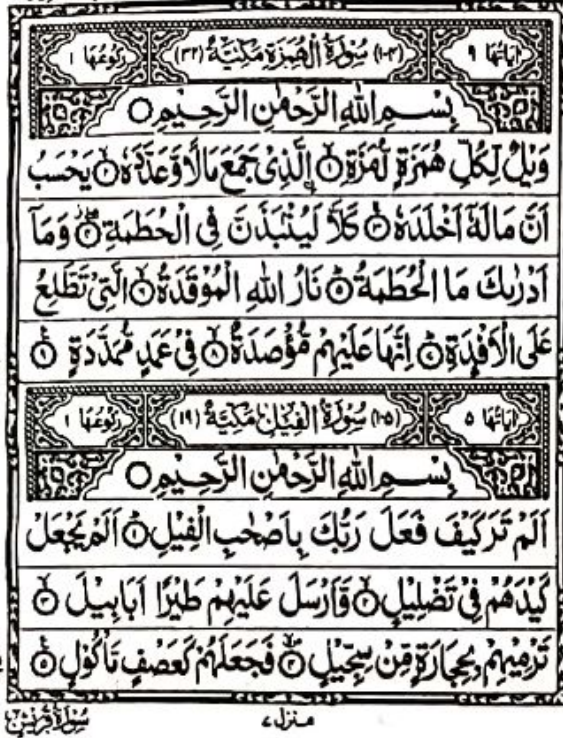 اٰيَاتُهَا ٩ (١٠٤) سُوْرَةُ الْهُمَزَةِ مَكِّيَّةٌ (٣٢) رُكُوْعُهَا ١
بِسْمِ اللهِ الرَّحْمٰنِ الرَّحِيْمِ ۝
وَيْلٌ لِّكُلِّ هُمَزَةٍ لُّمَزَةِ ۝١ ۨالَّذِيْ جَمَعَ مَالًا وَّعَدَّدَهٗ ۝٢ يَحْسَبُ
اَنَّ مَالَهٗٓ اَخْلَدَهٗ ۝٣ كَلَّا لَيُنْۢبَذَنَّ فِي الْحُطَمَةِ ۝٤ وَمَآ
اَدْرٰىكَ مَا الْحُطَمَةُ ۝٥ نَارُ اللهِ الْمُوْقَدَةُ ۝٦ الَّتِيْ تَطَّلِعُ
عَلَى الْاَفْـِٕدَةِ ۝٧ اِنَّهَا عَلَيْهِمْ مُّؤْصَدَةٌ ۝٨ فِيْ عَمَدٍ مُّمَدَّدَةٍ ۝٩
اٰيَاتُهَا ٥ (١٠٥) سُوْرَةُ الْفِيْلِ مَكِّيَّةٌ (١٩) رُكُوْعُهَا ١
بِسْمِ اللهِ الرَّحْمٰنِ الرَّحِيْمِ ۝
اَلَمْ تَرَ كَيْفَ فَعَلَ رَبُّكَ بِاَصْحٰبِ الْفِيْلِ ۝١ اَلَمْ يَجْعَلْ
كَيْدَهُمْ فِيْ تَضْلِيْلٍ ۝٢ وَّاَرْسَلَ عَلَيْهِمْ طَيْرًا اَبَابِيْلَ ۝٣
تَرْمِيْهِمْ بِحِجَارَةٍ مِّنْ سِجِّيْلٍ ۝٤ فَجَعَلَهُمْ كَعَصْفٍ مَّاْكُوْلٍ ۝٥
منزل ٧ سُوْرَةُ قُرَيْشٍ